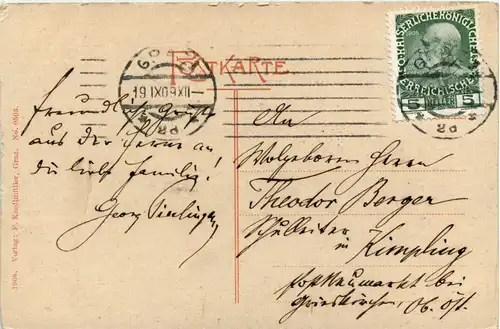 POSTKARTE
KAISERLICHE KÖNIGLICHE ÖSTERREICHISCHE
1908
5 HELLER 5
19.IX.09 XII
* 2d *
Freundl. Grüße
aus der Ferne an
die liebe Familie!
Georg
An
Wolgeboren Herrn
Theodor Berger
Schulleiter
in Kimpling
Post Neumarkt bei
Grieskirchen, Ob. Öst.
1908. Verlag: F. Knollmüller, Graz. No.